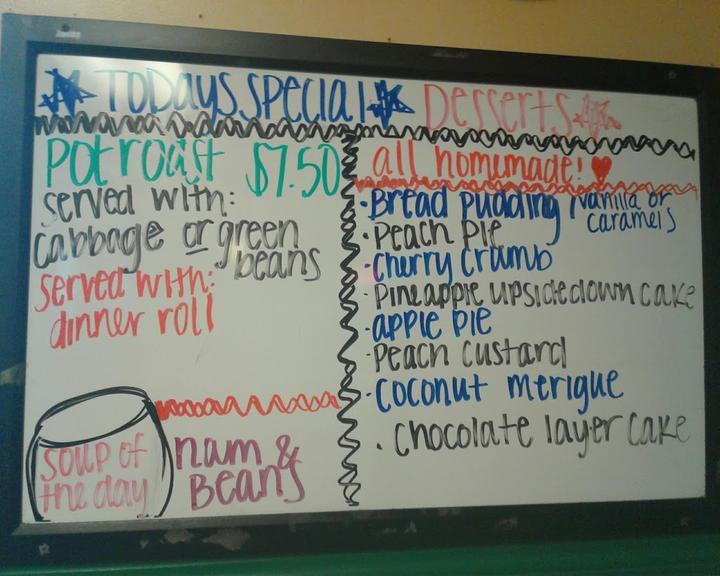 Todays special
Pot roast $7.50
served with:
cabbage or green
beans
served with:
dinner roll
soup of
the day
nam &
Beans
Desserts
all homemade!
·Bread pudding (vanilla or
caramel)
·Peach Pie
·cherry crumb
·Pineapple upsidedown cake
·apple pie
·Peach custard
·coconut merigue
·chocolate layer cake